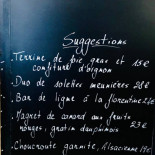 Suggestions
. Terrine de foie gras et 15€
confiture d'oignon
. Duo de solettes meunières 28€
. Bar de ligne à la florentine 27€
. Magret de canard aux fruits
rouges, gratin dauphinois 23€
. Choucroute garnie, Alsacienne